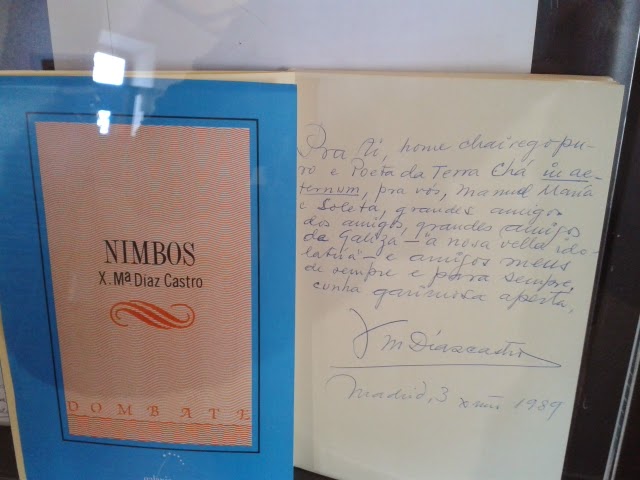 NIMBOS
X. Mª Díaz Castro
DOMBATE
Pra ti, home chairego pu-
ro e Poeta da Terra Chá in ae-
ternum, pra vós, Manuel María
e Soleta, grandes amigos
dos amigos, grandes amigos
de Galiza — a nosa vella ido-
latría — e amigos meus
de sempre e para sempre,
cunha garimosa aperta,
X M Díazcastro
Madrid, 3 1989